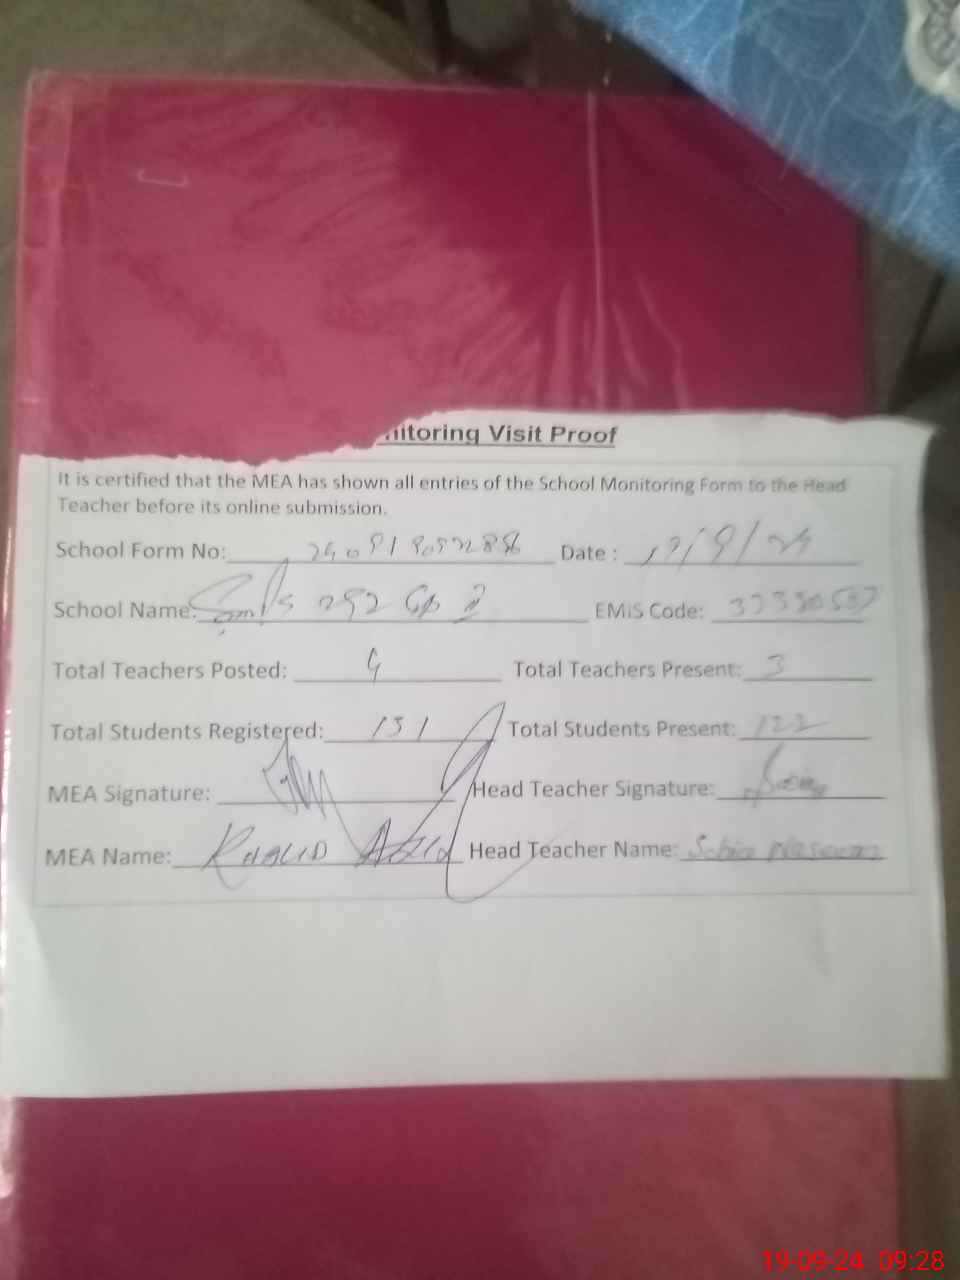 nitoring Visit Proof
It is certified that the MEA has shown all entries of the School Monitoring Form to the Head
Teacher before its online submission.
School Form No: Date : 19/9/24
School Name: 292 GB EMIS Code:
Total Teachers Posted: 4 Total Teachers Present: 3
Total Students Registered: 131 Total Students Present: 122
MEA Signature: Head Teacher Signature:
MEA Name: KHALID Head Teacher Name: Naseem
19-09-24 09:28